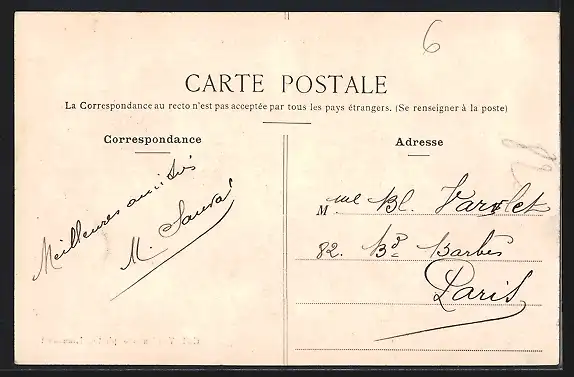 6
CARTE POSTALE
La Correspondance au recto n'est pas acceptée par tous les pays étrangers. (Se renseigner à la poste)
Correspondance
Meilleures amitiés
M.
Adresse
Mlle Bl. Varlet
82. Bd Barbès
Paris